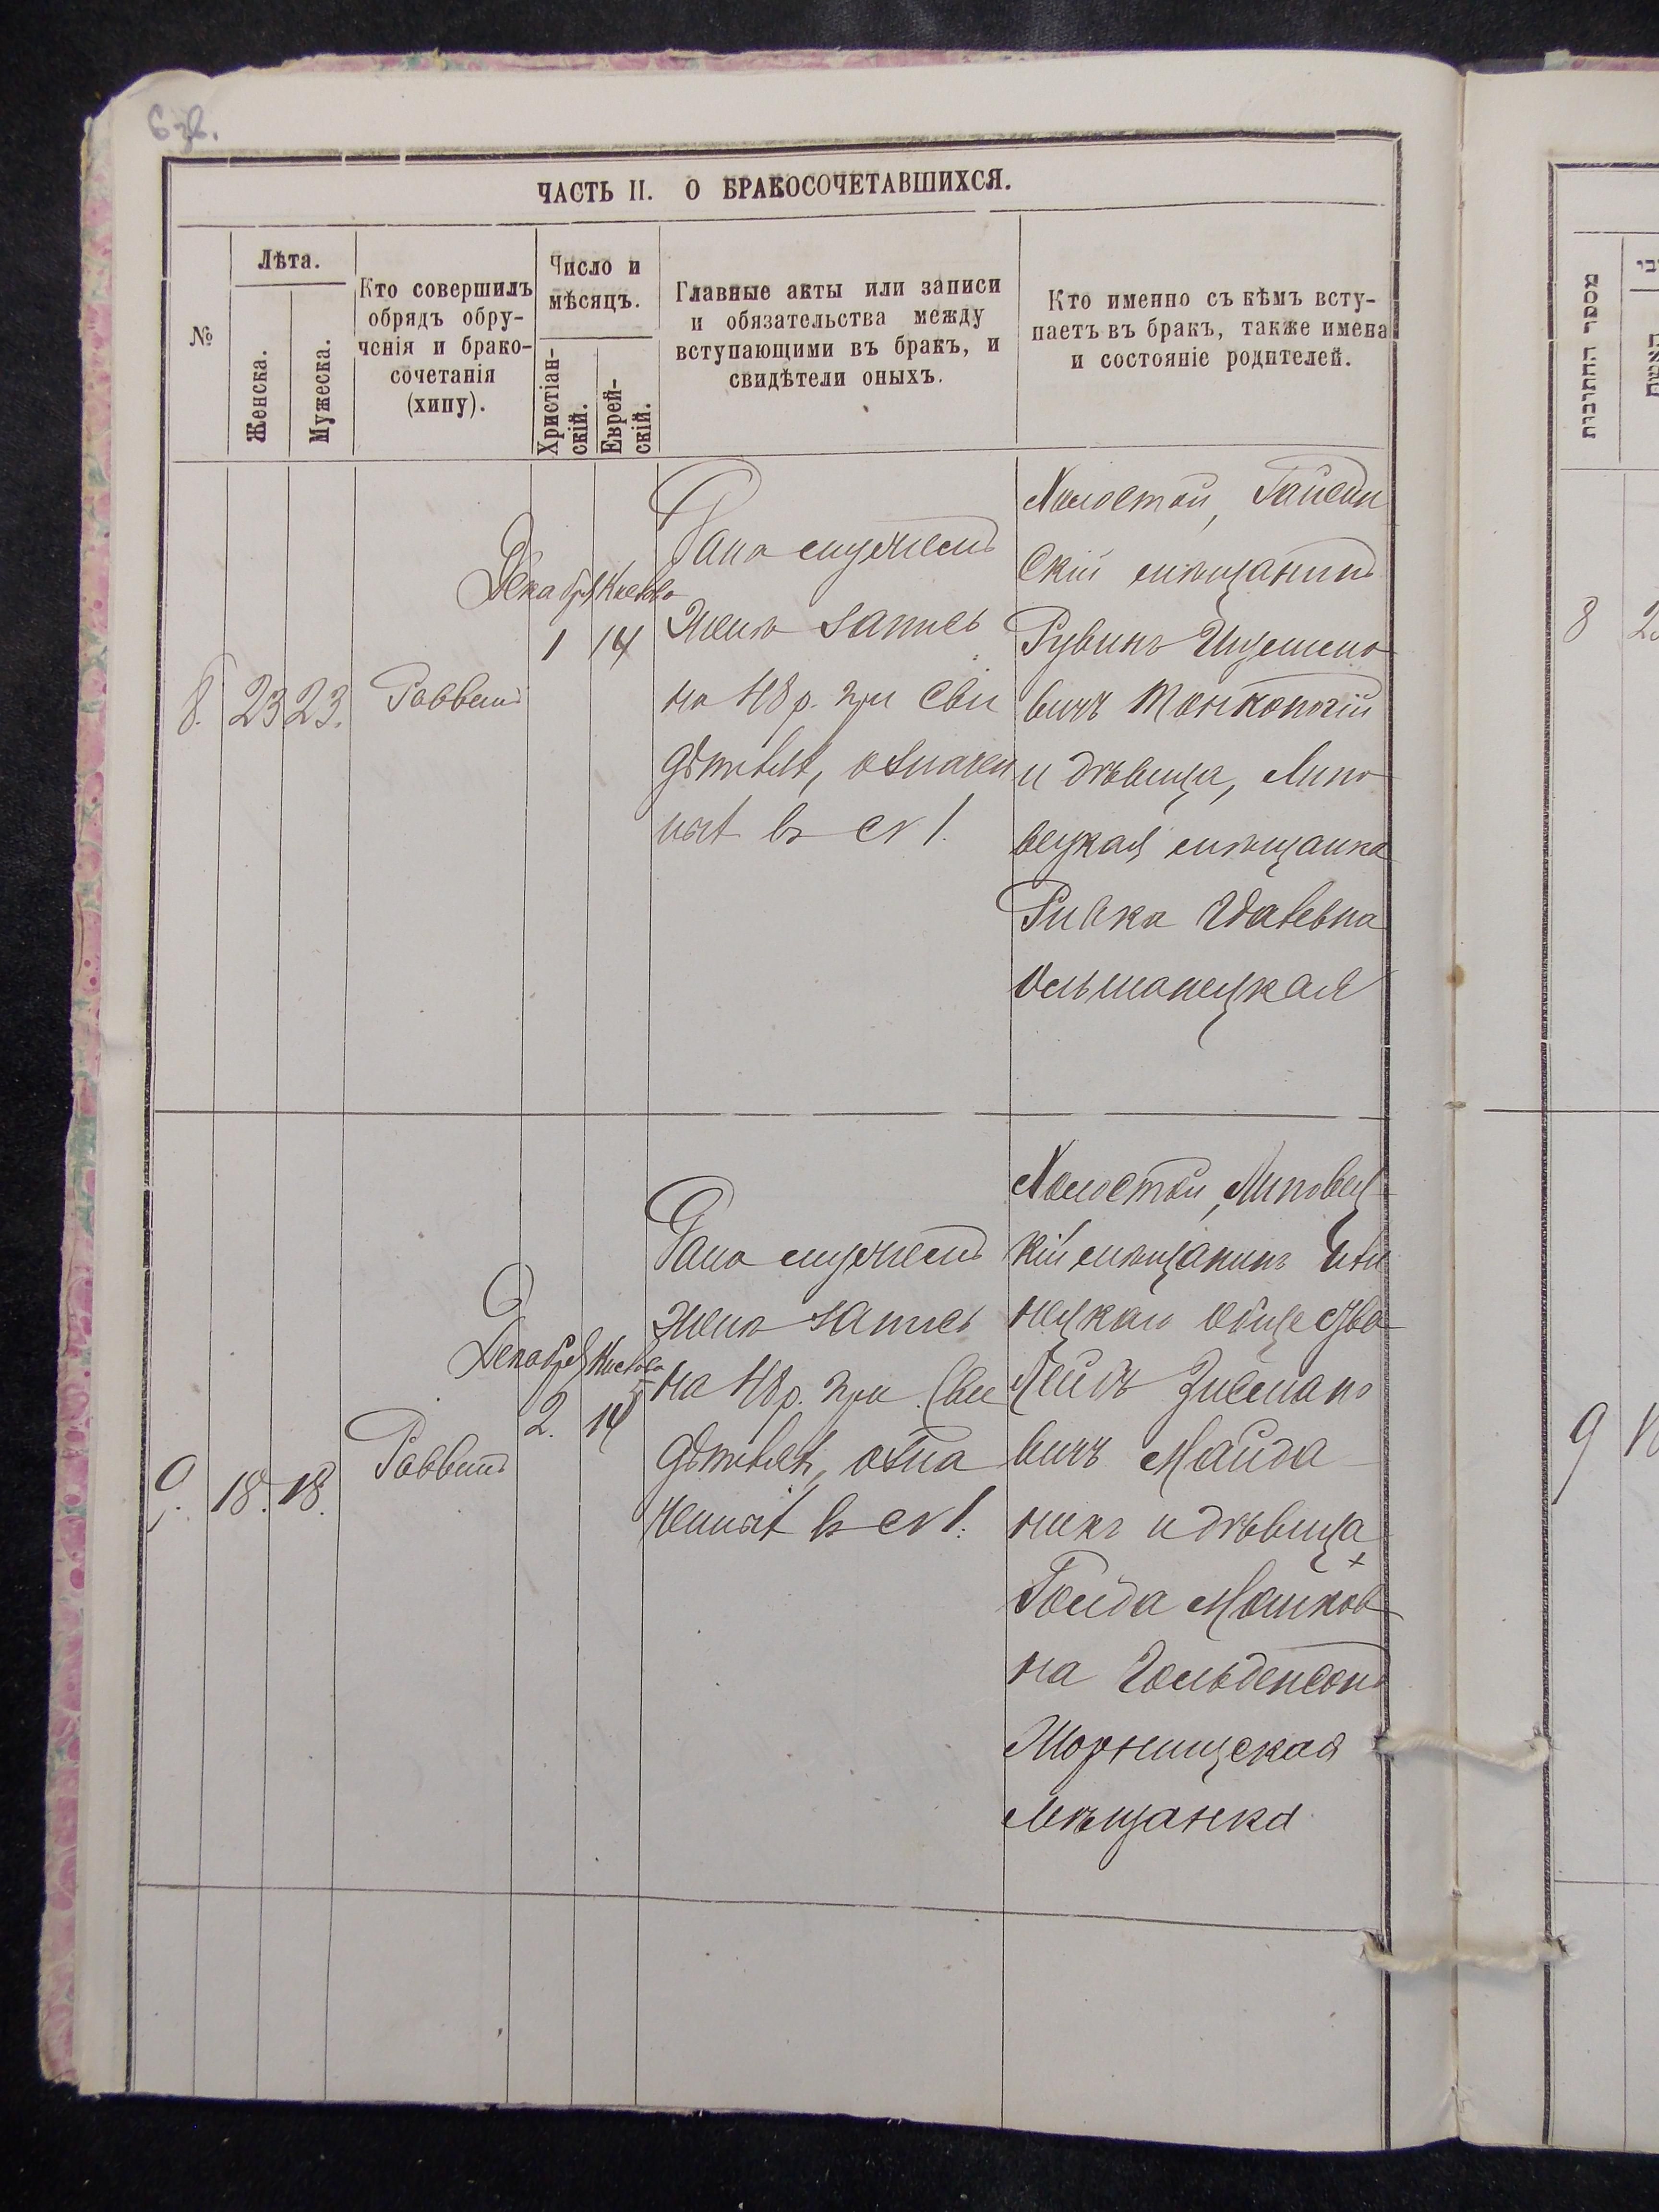 ЧАСТЬ II. О БРАКОСОЧЕТАВШИХСЯ.
№
Лѣта.
Женска.
Мужеска.
Кто совершилъ
обрядъ обру-
ченія и брако-
сочетанія
(хипу).
Число и
мѣсяцъ.
Христіан-
скій.
Еврей-
скій.
Главные акты или записи
и обязательства между
вступающими въ бракъ, и
свидѣтели оныхъ.
Кто именно съ кѣмъ всту-
паетъ въ бракъ, также имена
и состояніе родителей.
8. 23 23. Раввинъ
Декабря
1
Кислева
14
Дана мужемъ
жене запись
на 48 р. при сви
дѣтеляхъ, означен
ныхъ въ ст 1.
Холостой, Гайсин
скій мѣщанинъ
Рувинъ
вичъ Тонконогій
и дѣвица, Липо
вецкая мѣщанка
Ривка
Ольшанецкая
9. 18. 18. Раввинъ
Декабря
2.
Кислева
Дана мужемъ
жене запись
на 48 р. при Сви
дѣтеляхъ, озна
ченныхъ въ ст 1.
Холостой, Липовец
кій мѣщанинъ Или
нецкаго общества
Лейбъ Зусмано
вичъ Майда
никъ и дѣвица
Гольда Мошков
на Гольденсонъ
мѣщанка
מספר החתונות
8
9